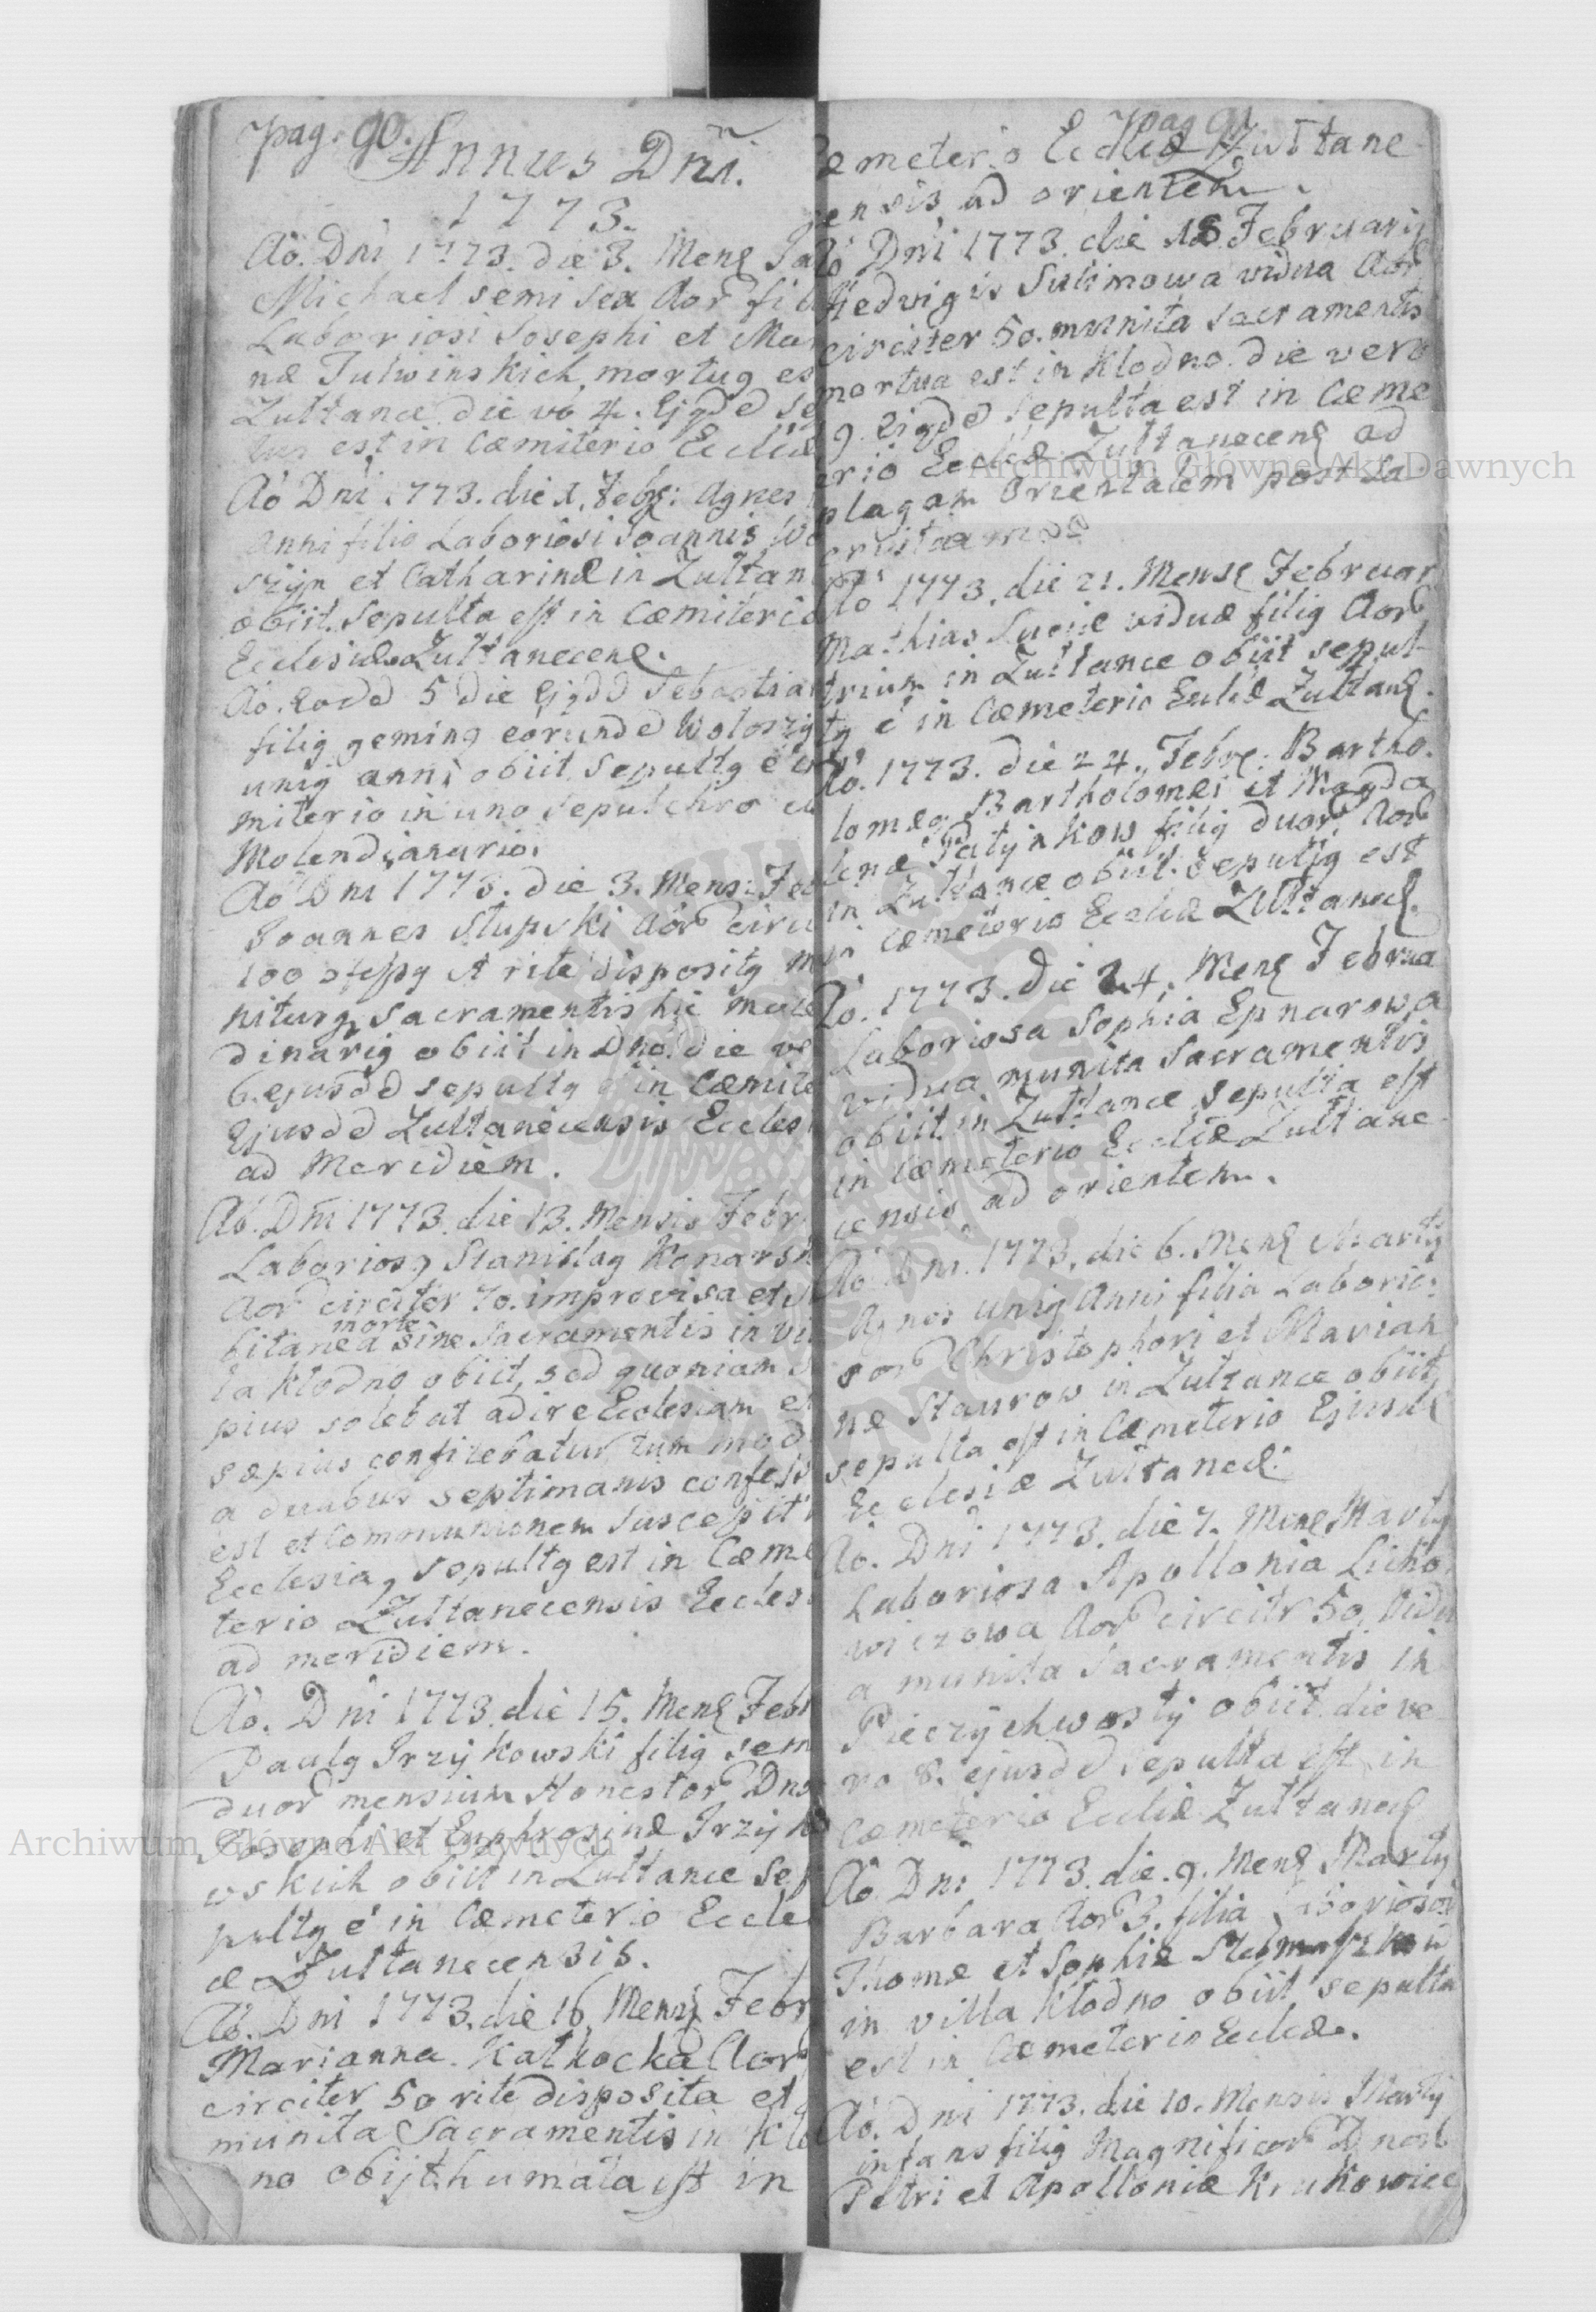 pag. 90.
Annus Dni.
1773.
Ao. Dni 1773. die 3. Mens Ja
Michael semi sex Aor fil
Laboriosi Josephi et Mar
næ Tuliwinskich, mortug es
Zułtance die vo 4. Ejgdd se
tus est in Cæmiterio Eccliæ
Ao Dni 1773. die 1. Febr: Agnes
Anni filia Laboriosi Joannis Wo
szyn et Catharinæ in Zułtan
obiit. Sepulta est in Cæmiterio
Ecclesiæ Zułtanecens.
Ao. Eodd 5 die Ejgdd Sebastian
filig geming eorundd Wołoszy
unig anni obiit. Sepultg e in
miterio in uno sepulchro
Molendianario.
Ao Dni 1773. die 3. Mens: Feb
Joannes Słupski Aor circi
100 et rite disposity m
nitusq Sacramentis hic mole
dinarig obiit in Dno. die ve
6. ejusdd sepultg e in Cæmite
Ejusdd Zułtanecensis Eccles
ad Meridiem.
Ao. Dni 1773. die 13. Mensis Febr
Laboriosg Stanislag Konarsk
Aor circiter 70. improvisa et su
bitanea morte sine Sacramentis in vil
la Kłodno obiit, sed quoniam s
pius solebat adire Ecclesiam et
sæpius confitebatur, tum mod
a duabus septimanis confess
est et Communionem suscepit
Ecclesia, sepultg est in Cæme
terio Zułtanecensis Eccles
ad meridiem.
Ao. Dni 1773. die 15. Mens Febr
Paulg Irzykowski filig sem
duor mensium Honestor Dno
Josephi et Euphrosinæ Irzyko
wskich obiit in Zułtance se
pultg e in Cæmeterio Eccle
æ Zułtanecensis.
Ao. Dni 1773. die 16. Mens Febr
Marianna Kałkocka Aor
circiter 50 rite disposita et
munita Sacramentis in Kło
no obijt humata est in
pag 91
Cæmeterio Eccliæ Zułtane
censis ad orientem.
Ao Dni 1773. die 18. Februarij
Hedvigis Sulimowa vidua Aor
circiter 50. munita sacramentis
mortua est in Kłodno. die vero
9 Eigdd sepulta est in Cæme
erio Eccliæ Zułtanecens ad
plagam Orientalem post Sa
cristiam
Ao 1773. die 21. Mense Februar
Mathias Luciæ viduæ filig Aor
trium in Zułtance obiit sepul
tg e in Cæmeterio Eccliæ Zułtans.
Ao. 1773. die 24. Febr. Bartho
lomæg Bartholomei et Magda
lenæ Patynkow filig duor Aor
in Zułtance obiit. Sepultg est
in Cæmeterio Eccliæ Zułtanecs.
Ao. 1773. die 24. Mens Februa
Laboriosa Sophia Epnarowa
vidua munita Sacramentis
obiit in Zułtance sepulta est
in Cæmeterio Eccliæ Zułtane
censis ad orientem.
Ao Dni. 1773. die 6. Mens Martij
Agnes unig Anni filia Laborio
sor Christophori et Marian
næ Staurow in Zułtance obiit,
sepulta est in Cæmeterio Ejusd
Ecclesiæ Zułtanecs.
Ao. Dni 1773. die 7. Mens Martij
Laboriosa Apollonia Licho
wiczowa Aor circitr 50. Vidu
a munita Sacramentis in
Pieczychwosty obiit. die ve
ro 8. ejusdd sepulta est in
Cæmeterio Eccliæ Zułtanecs
Ao Dni 1773. die. 9. Mens Martij
Barbara Aor 3. filia Laboriosor
Thomæ et Sophiæ
in villa Kłodno obiit sepulta
est in Cæmeterio Eccliæ.
Ao. Dni 1773. die 10. Mensis Martij
infans filig Magnificor Dnor
Petri et Apolloniæ Krukowiec
Archiwum Główne Akt Dawnych
Archiwum Główne Akt Dawnych